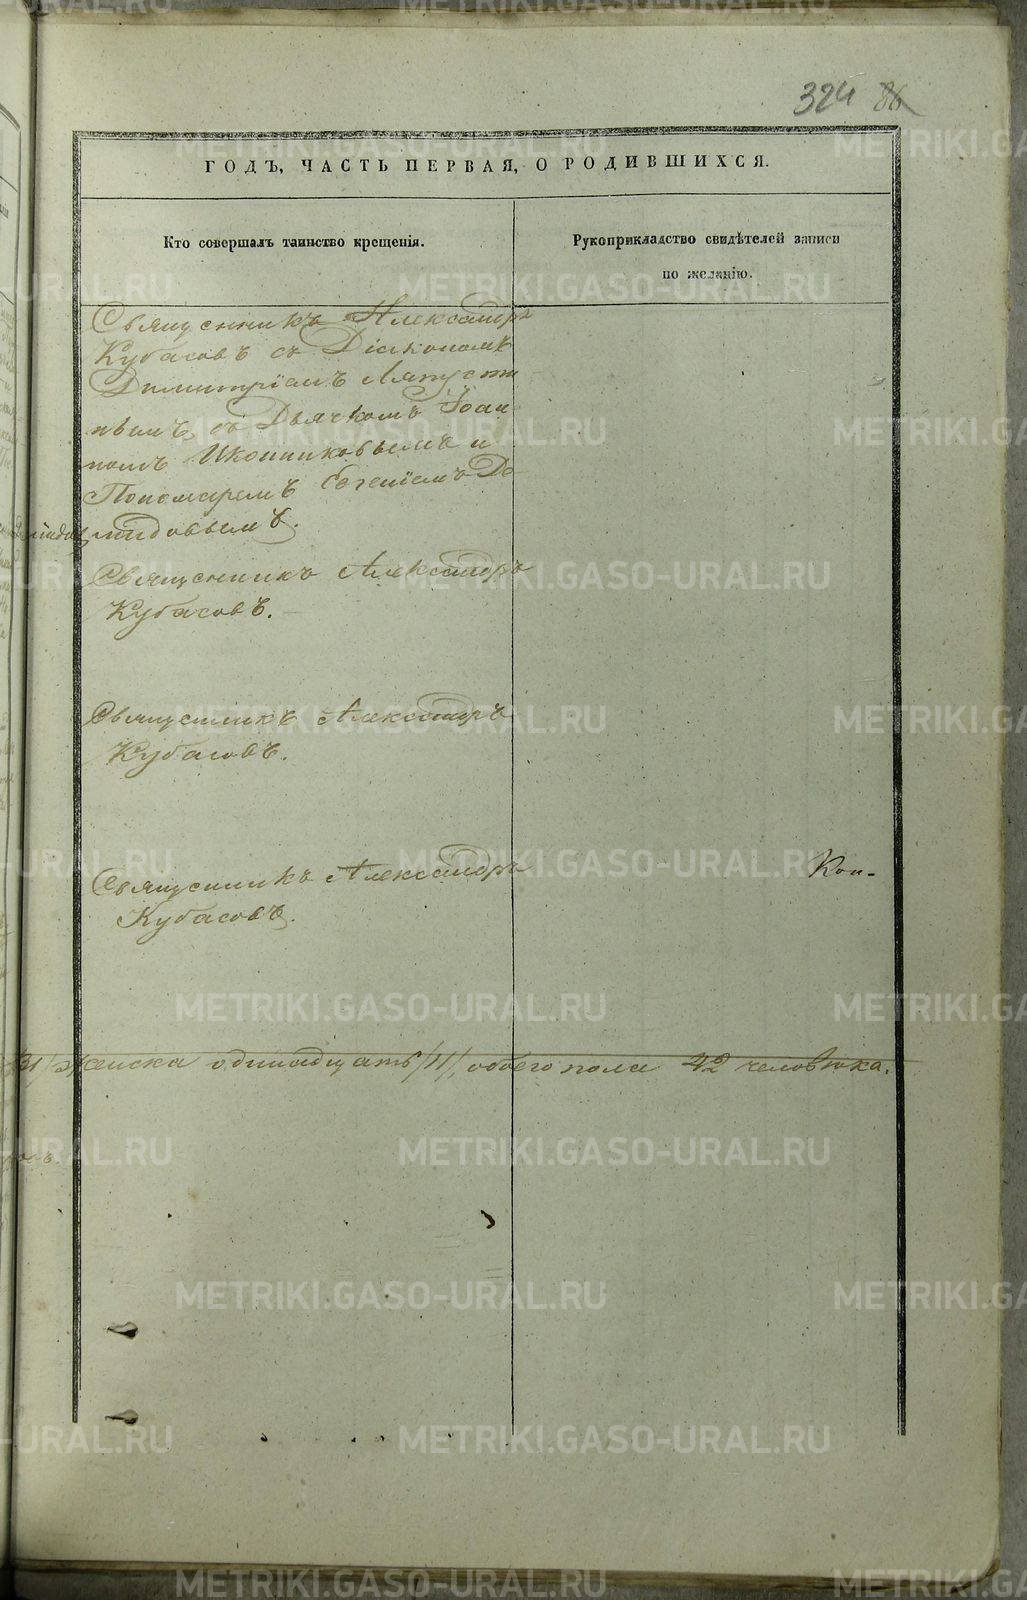 324 86
ГОДЪ, ЧАСТЬ ПЕРВАЯ, О РОДИВШИХСЯ.
Кто совершалъ таинство крещенія.
Рукоприкладство свидѣтелей записи
по желанію.
Священникъ Александръ
Кубасовъ съ Діакономъ
Димитріемъ Ляпусти
нымъ, съ Дьячкомъ Іоан
номъ Иконниковымъ и
Пономаремъ Евгеніемъ Де
мидовымъ.
Священникъ Александръ
Кубасовъ.
Священникъ Александръ
Кубасовъ.
Священникъ Александръ
Кубасовъ.
Кон-
31/ женска одинадцать /11/, обоего пола 42 человѣка.
METRIKI.GASO-URAL.RU